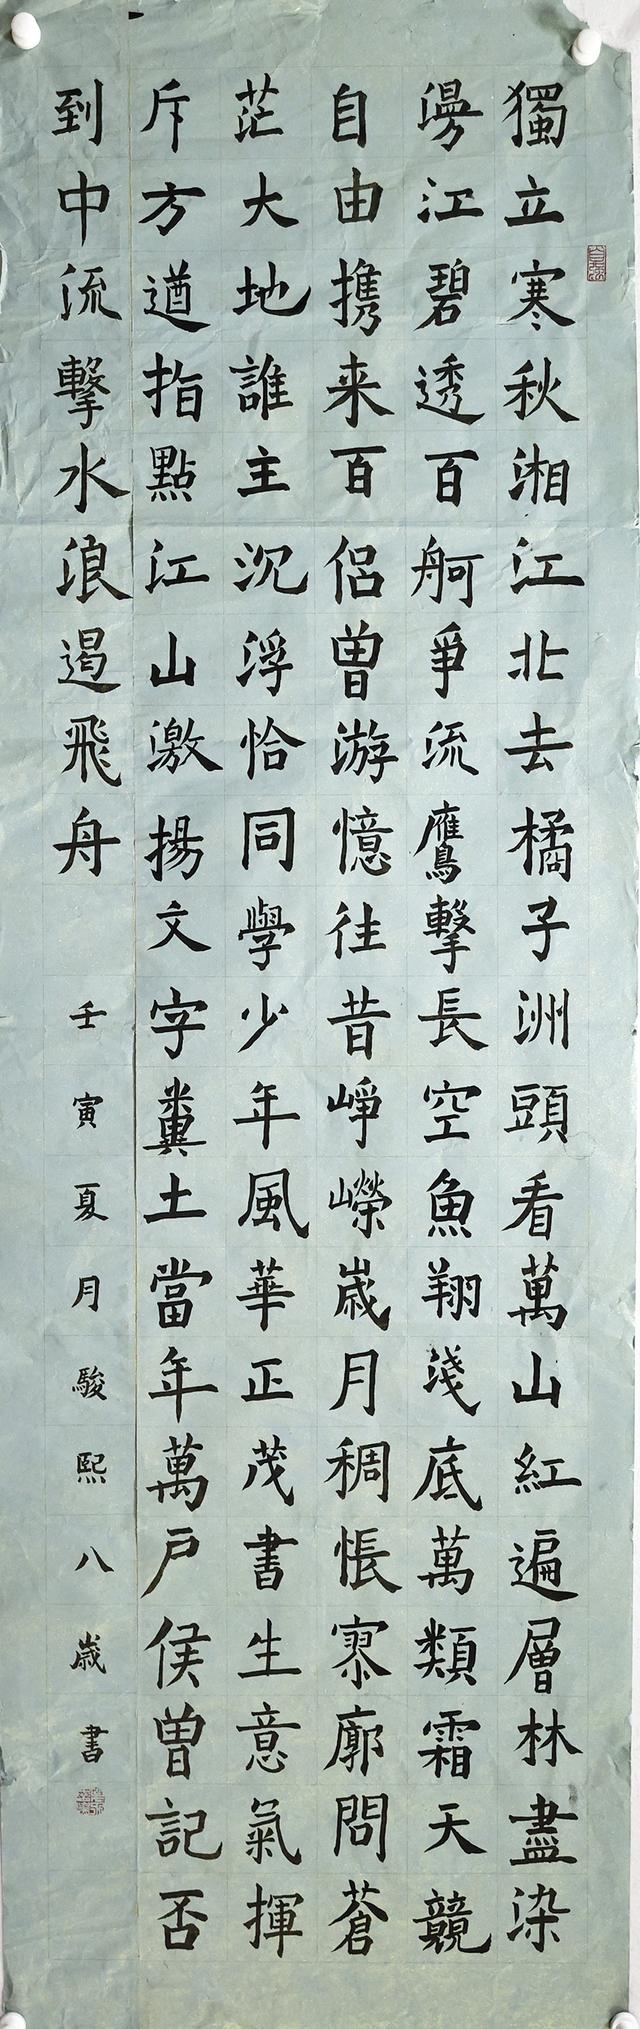 獨立寒秋湘江北去橘子洲頭看萬山紅遍層林盡染
漫江碧透百舸爭流鷹擊長空魚翔淺底萬類霜天競
自由携来百侣曾游憶往昔崢嶸歲月稠悵寥廓問蒼
茫大地誰主沉浮恰同學少年風華正茂書生意氣揮
斥方遒指點江山激揚文字糞土當年萬戶侯曾記否
到中流擊水浪遏飛舟 壬寅夏月駿熙八歲書